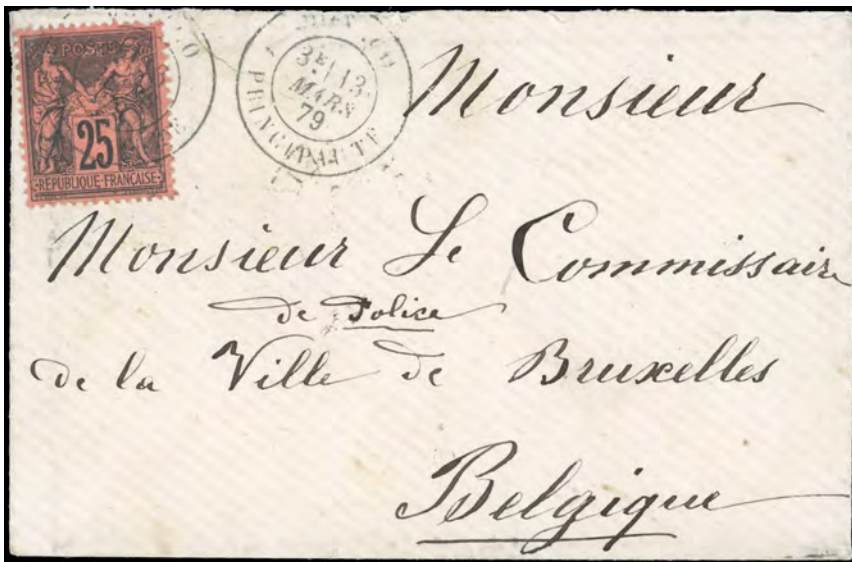 POSTES
25
RÉPUBLIQUE FRANÇAISE
3E 13
MARS
79
PRINCIPAUTÉ
Monsieur
Monsieur Le Commissaire
de Police
de la Ville de Bruxelles
Belgique